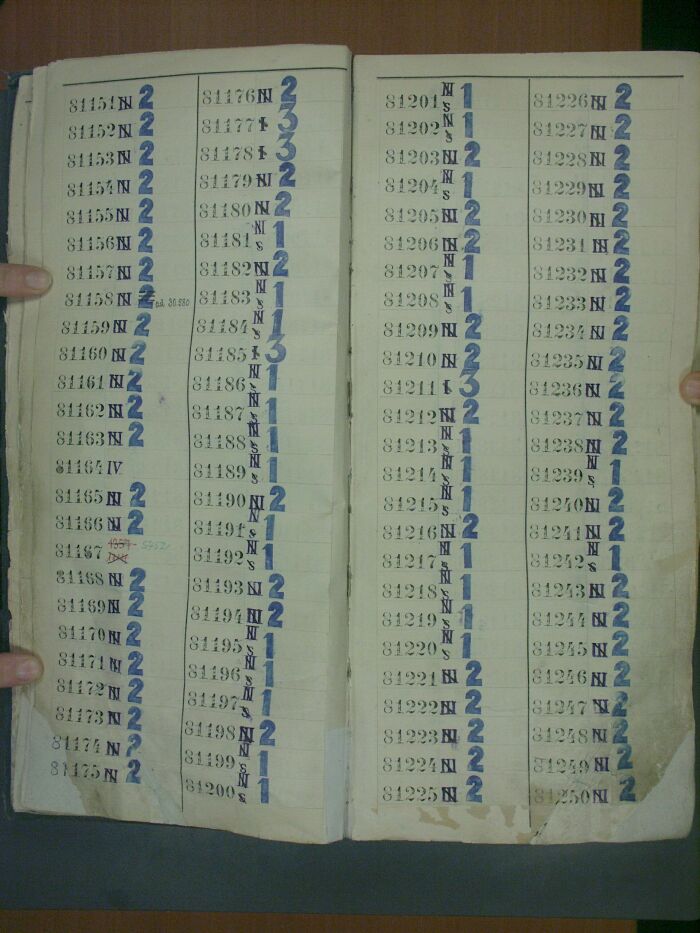 81151 N 2
81152 N 2
81153 N 2
81154 N 2
81155 N 2
81156 N 2
81157 N 2
81158 N 2 od. 30.580
81159 N 2
81160 N 2
81161 N 2
81162 N 2
81163 N 2
81164 IV.
81165 N 2
81166 N 2
81167
81168 N 2
81169 N 2
81170 N 2
81171 N 2
81172 N 2
81173 N 2
81174 N 2
81175 N 2
81176 N 2
81177 I 3
81178 I 3
81179 N 2
81180 N 2
81181 N s 1
81182 N 2
81183 N s 1
81184 N s 1
81185 I 3
81186 N s 1
81187 N s 1
81188 N s 1
81189 N s 1
81190 N 2
81191 N s 1
81192 N s 1
81193 N 2
81194 N 2
81195 N s 1
81196 N s 1
81197 N s 1
81198 N 2
81199 N s 1
81200 N s 1
81201 N s 1
81202 N s 1
81203 N 2
81204 N s 1
81205 N 2
81206 N 2
81207 N s 1
81208 N s 1
81209 N 2
81210 N 2
81211 I 3
81212 N 2
81213 N s 1
81214 N s 1
81215 N s 1
81216 N 2
81217 N s 1
81218 N s 1
81219 N s 1
81220 N s 1
81221 N 2
81222 N 2
81223 N 2
81224 N 2
81225 N 2
81226 N 2
81227 N 2
81228 N 2
81229 N 2
81230 N 2
81231 N 2
81232 N 2
81233 N 2
81234 N 2
81235 N 2
81236 N 2
81237 N 2
81238 N 2
81239 N s 1
81240 N 2
81241 N 2
81242 N s 1
81243 N 2
81244 N 2
81245 N 2
81246 N 2
81247 N 2
81248 N 2
81249 N 2
81250 N 2